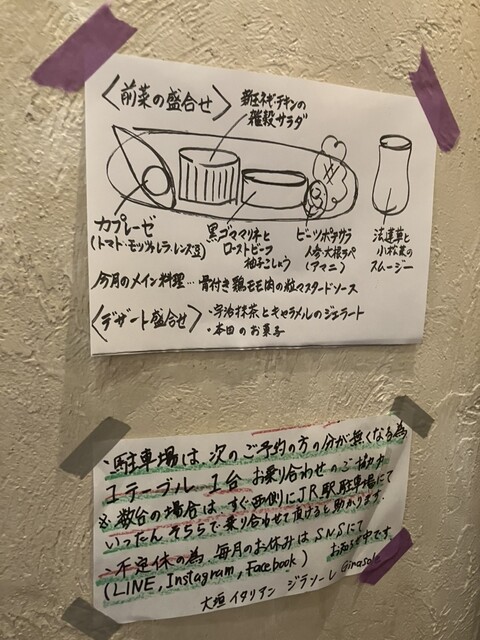 〈前菜の盛合せ〉
新玉ネギ・チキンの
雑穀サラダ
カプレーゼ
(トマト・モッツァレラ・レンズ豆)
黒ゴママリネと
ローストビーフ
柚子こしょう
ビーツポテサラ
人参・大根ラペ
(アマニ)
法蓮草と
小松菜の
スムージー
今月のメイン料理…骨付き鶏モモ肉の粒マスタードソース
〈デザート盛合せ〉
・宇治抹茶とキャラメルのジェラート
・本日のお菓子
・駐車場は、次のご予約の方の分が無くなる為
1テーブル 1台 お乗り合わせのご協力
※数台の場合は、すぐ西側にJR駅駐車場にて
いったんそちらで乗り合わせて頂けると助かります。
・不定休の為、毎月のお休みはSNSにて
(LINE, Instagram, Facebook) お知らせ中です。
大垣イタリアン ジラソーレ Girasole